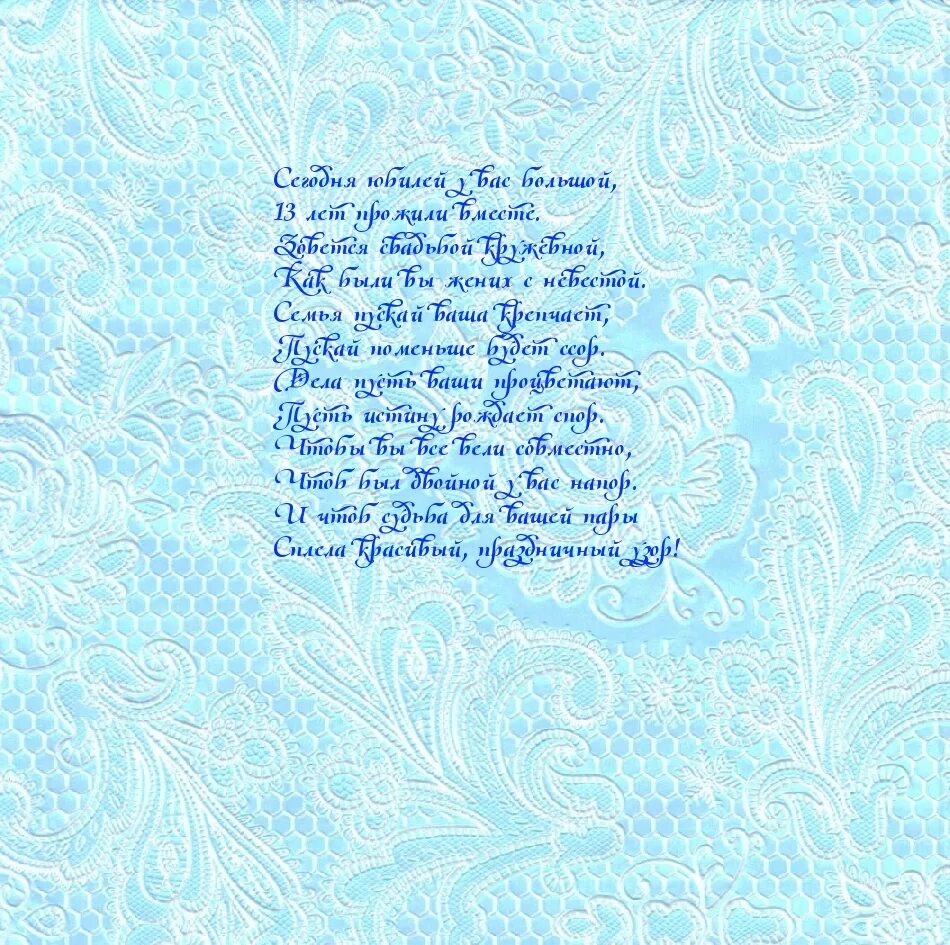 Сегодня юбилей у вас большой,
13 лет прожили вместе.
Зовется свадьбой кружевной,
Как были вы жених с невестой.
Семья пускай ваша крепчает,
Пускай поменьше будет ссор.
Дела пусть ваши процветают,
Пусть истину рождает спор.
Чтобы вы все вели совместно,
Чтоб был двойной у вас напор.
И чтоб судьба для вашей пары
Сплела красивый, праздничный узор!